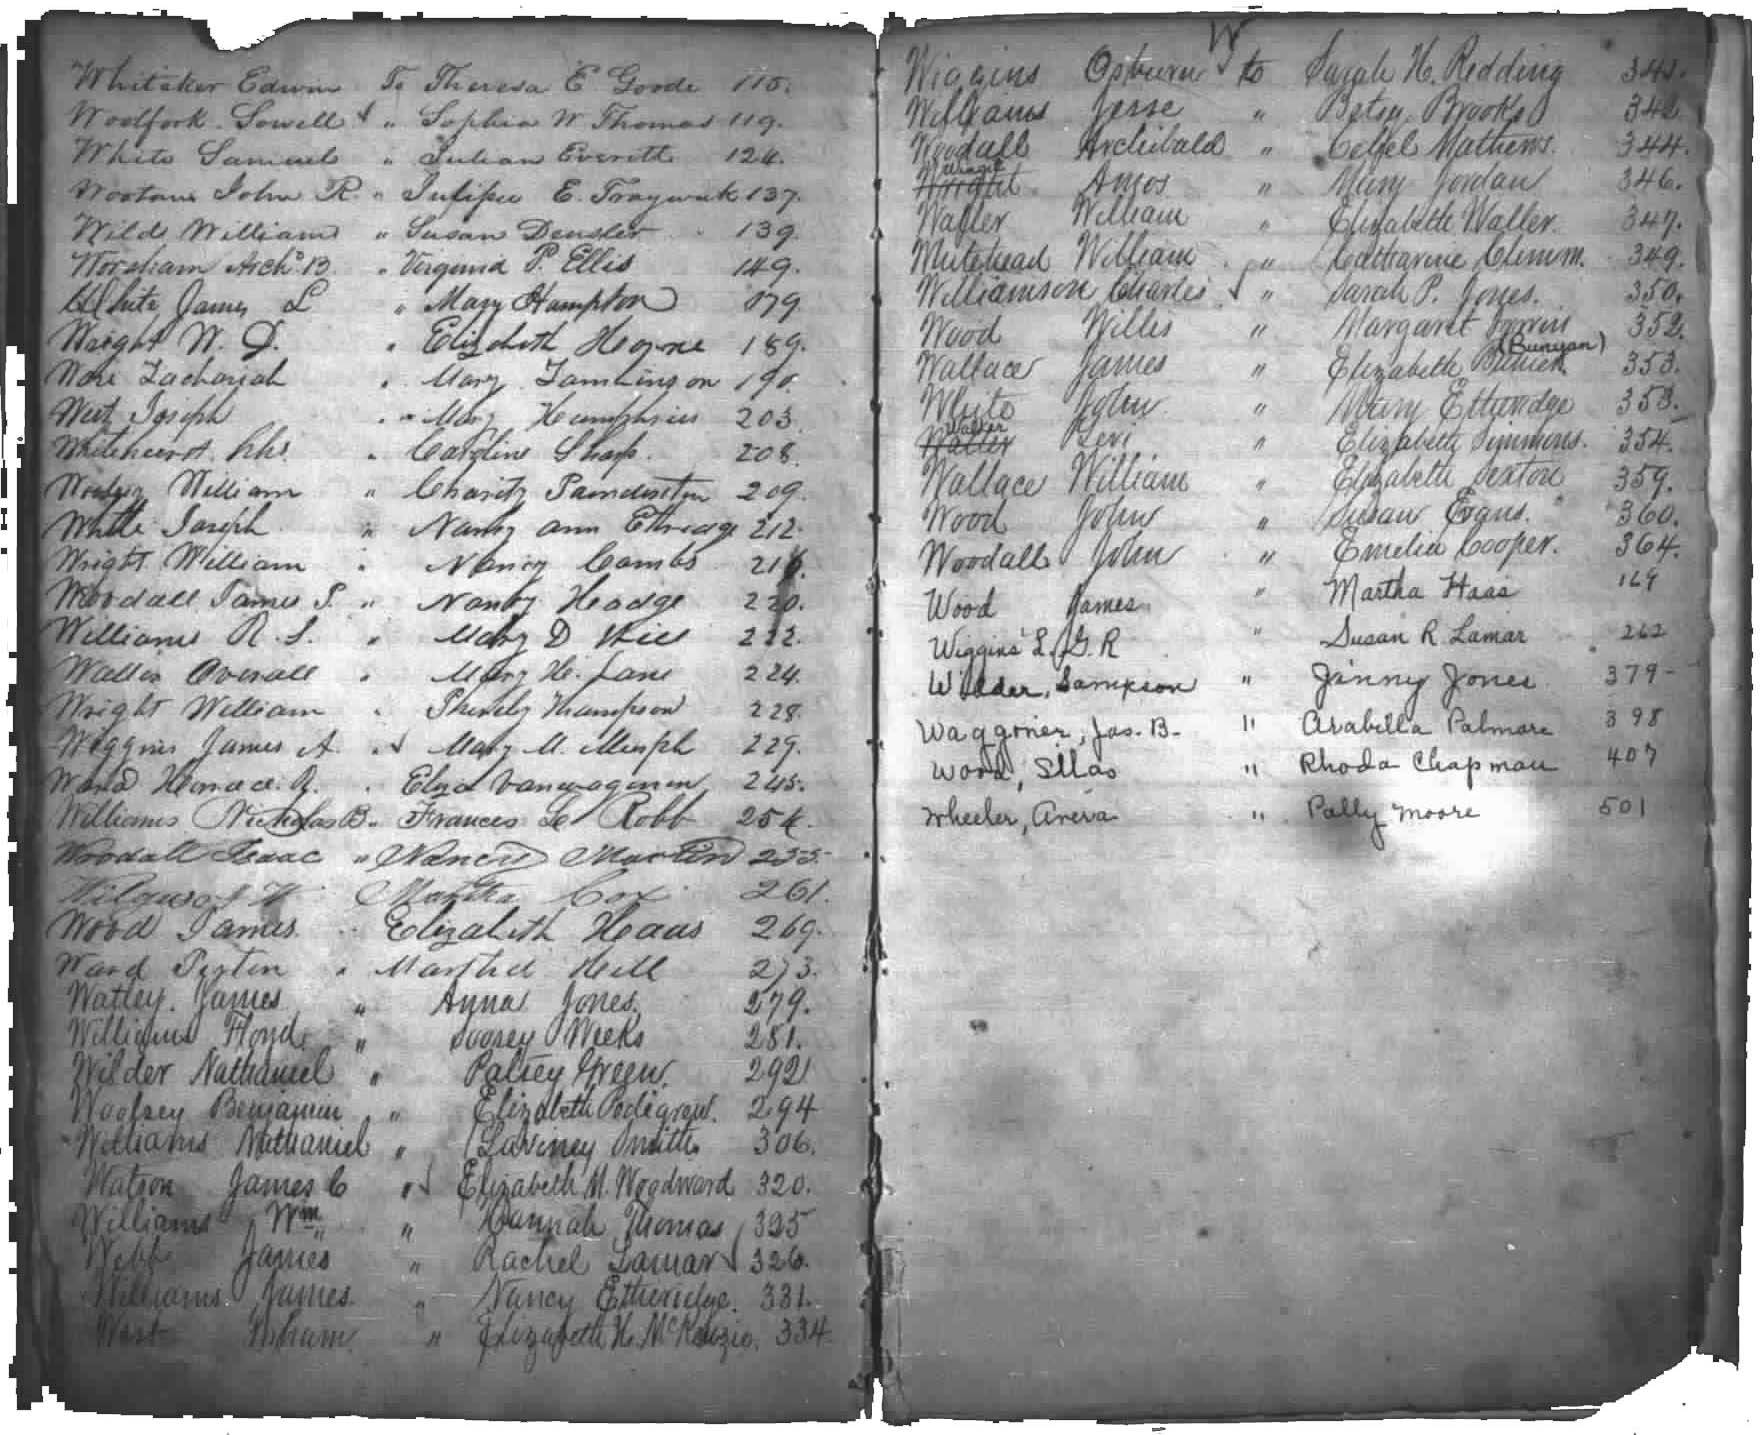 Whitaker Edwin To Theresa E Goode 115.
Woolfork Sowell " Sophia W. Thomas 119.
White Samuel " Julian Everitt 124.
Wootan John R. " E. 137.
Wild William " Susan Densler 139.
Worsham Archd B. " Virginia P. Ellis 149.
White James L " Mary Hampton 179
Wright W. D. " Elizabeth Hogne 189.
Ware Zachariah " Mary Tomlinson 190.
West Joseph " Mary Humphries 203.
Whitehurst Chs. " Caroline Sharp. 208.
William " Charity Poindexter 209.
White Joseph " Nancy ann Ethredge 212.
Wright William " Nancy Combs 218.
Woodall James S. " Nancy Hodge 220.
Williams R. S. " Mary D 222.
Overall " Mary H. Lane 224.
Wright William " Thompson 228.
Wiggins James A. " Mary M. 229.
Ward Horace R. " Eliza Vanwagenen 245.
Williams Nicholas B. " Frances Robb 254.
Woodall Isaac " Nancy Martin 255.
Martha Cox 261.
Wood James " Elizabeth Haas 269.
Ward " Martha Hill 273.
Watley. James " Anna Jones. 279.
Williams Floyd. " Weeks 281.
Wilder Nathaniel " Patsey Green. 292
Woolsey Benjamin " Elizabeth Pedigrew. 294
Williams Nathaniel " Laviney Smith. 306.
Watson James C " Elizabeth M. Woodward 320.
Williams Wm " Hannah Thomas 325
Webb James " Rachel Lamar 326.
Williams James. " Nancy Etheridge. 331.
West " Elizabeth H. McKenzie. 334
W
Wiggins Osburn to Sarah H. Redding 341.
Williams Jesse " Betsy Brooks 342
Woodall Archibald " Celfel Mathews. 344.
Wright Amos " Mary Jordan 346.
Waller William " Elizabeth Waller. 347.
Whitehead William " Catharine Clemm. 349.
Williamson Charles " Sarah P. Jones. 350.
Wood Willis " Margaret 352.
(Bunyan)
Wallace James " Elizabeth 353.
White John " Mary Etheridge 353.
Walker
Waller Levi " Elizabeth Simmons. 354.
Wallace William " Elizabeth Sexton 359.
Wood John " Susan Evans. 360.
Woodall John " Emelia Cooper. 364.
Wood James " Martha Haas 169
Wiggins L. G. R " Susan R. Lamar 262
Wilder, Sampson " Jinny Jones 379
Waggoner, Jas. B. " Arabella Palmore 398
Wood, Silas " Rhoda Chapman 407
Wheeler, Avera " Polly Moore 501